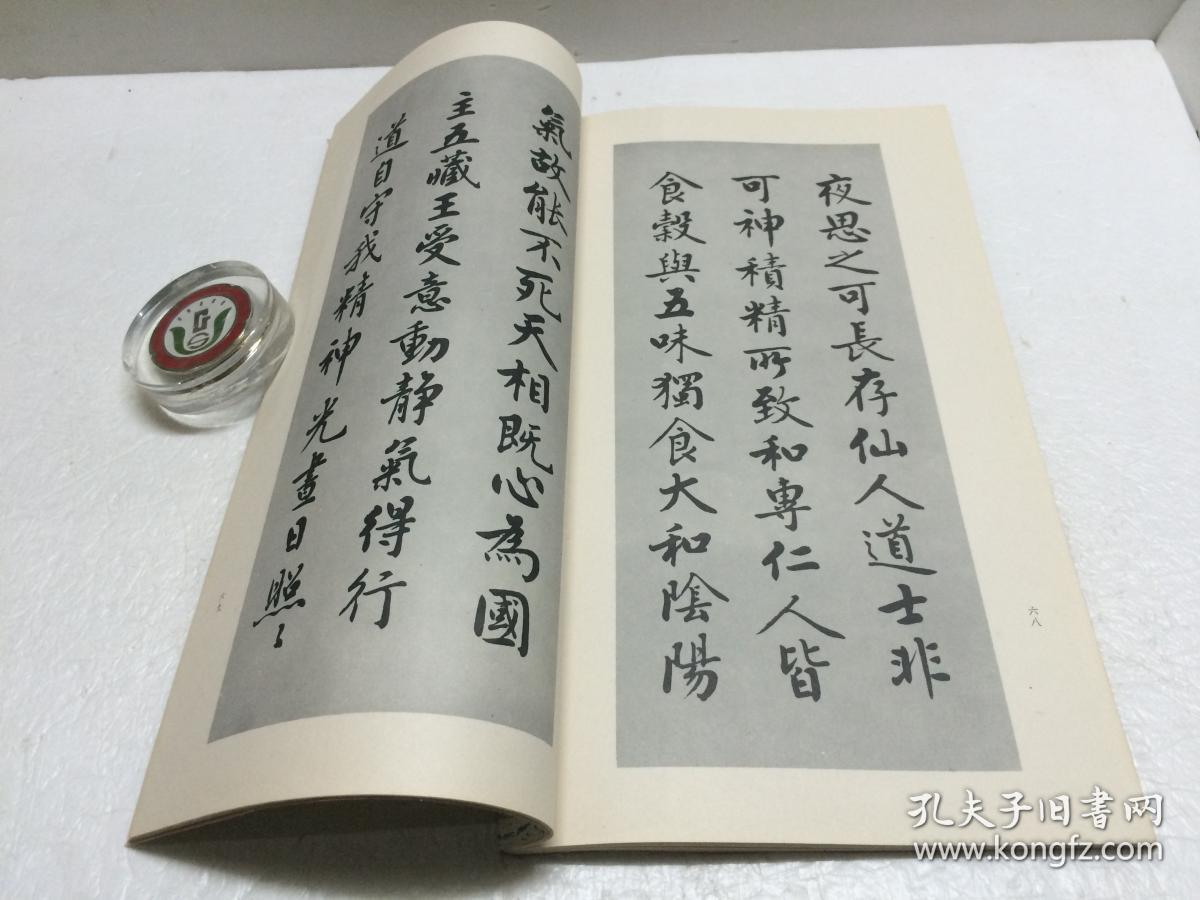 夜思之可長存仙人道士非
可神積精所致和專仁人皆
食穀與五味獨食大和陰陽
六八
氣故能不死天相既心為國
主五藏王受意動靜氣得行
道自守我精神光晝日照〻
六九
孔夫子旧書网
www.kongfz.com